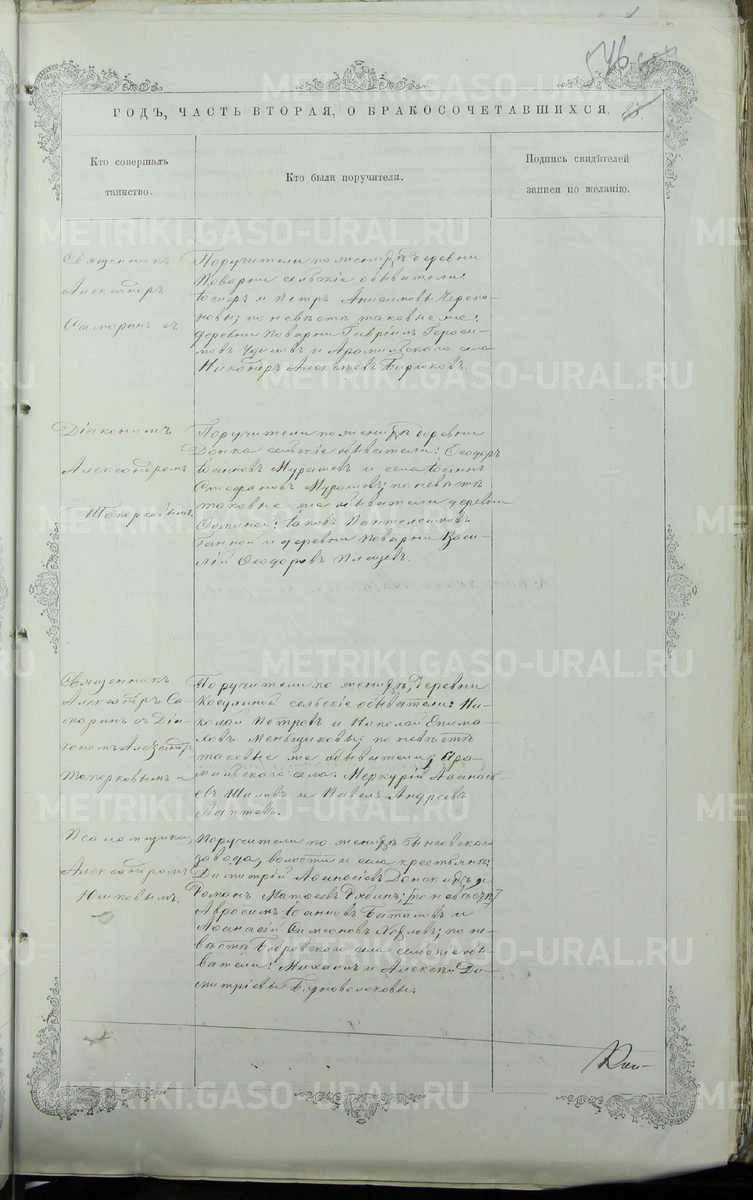 546
ГОДЪ, ЧАСТЬ ВТОРАЯ, О БРАКОСОЧЕТАВШИХСЯ.
Кто совершалъ
таинство.
Кто были поручители.
Подпись свидѣтелей
записи по желанію.
Священникъ
Александръ
Самаринъ съ
Поручители по женихѣ деревни
Поварни сельскіе обыватели:
Іосифъ и Петръ Анисимовы
по невѣстѣ таковые же:
деревни Поварни Гавріилъ Гераси-
мовъ и Арамильскаго села
Никаноръ Алексѣевъ Бирюковъ.
Діакономъ
Александромъ
Топорковымъ,
Поручители по женихѣ деревни
сельскіе обыватели: Ѳеодоръ
Іоанновъ Мурашевъ и села Іоаннъ
Стефановъ Мурашевъ; по невѣстѣ
таковые же обыватели деревни
Іаковъ Пантелеимоновъ
и деревни Поварни Васи-
лій Ѳеодоровъ Плещевъ.
Священникъ
Александръ Са-
маринъ съ Діа-
кономъ Александр
Топорковымъ и
Поручители по женихѣ, деревни
Косулиной сельскіе обыватели: Ни-
колай Петровъ и Николай Епима-
ховъ Меньщиковы; по невѣстѣ
таковые же обыватели Ара-
мильскаго села: Меркурій Аѳанась-
евъ Шиловъ и Павелъ Андреевъ
Лаптевъ.
Псаломщикомъ
Александромъ
Юшковымъ.
Поручители по женихѣ Бынговскаго
завода, волости и села крестьяне:
Димитрій Аѳанасіевъ и
Романъ Матѳеевъ Рябинъ; по невѣстѣ
Іоанновъ и
Аѳанасій Симеоновъ по не-
вѣстѣ Бобровскаго села сельскіе обы-
ватели: Михаилъ и Алексѣй Ди-
митріевы Черноволоковы.
METRIKI.GASO-URAL.RU